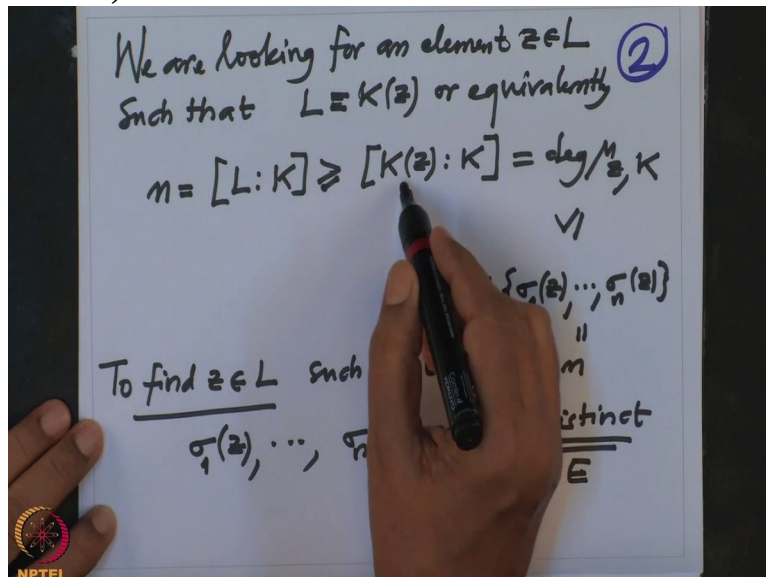 We are looking for an element z∈L
such that L = K(z) or equivalently
②
n = [L:K] ⩾ [K(z):K] = deg μ_z,K
\/|
{σ₁(z), ⋯, σₙ(z)}
||
n
To find z∈L such
σ₁(z), ⋯, distinct
E
NPTEL